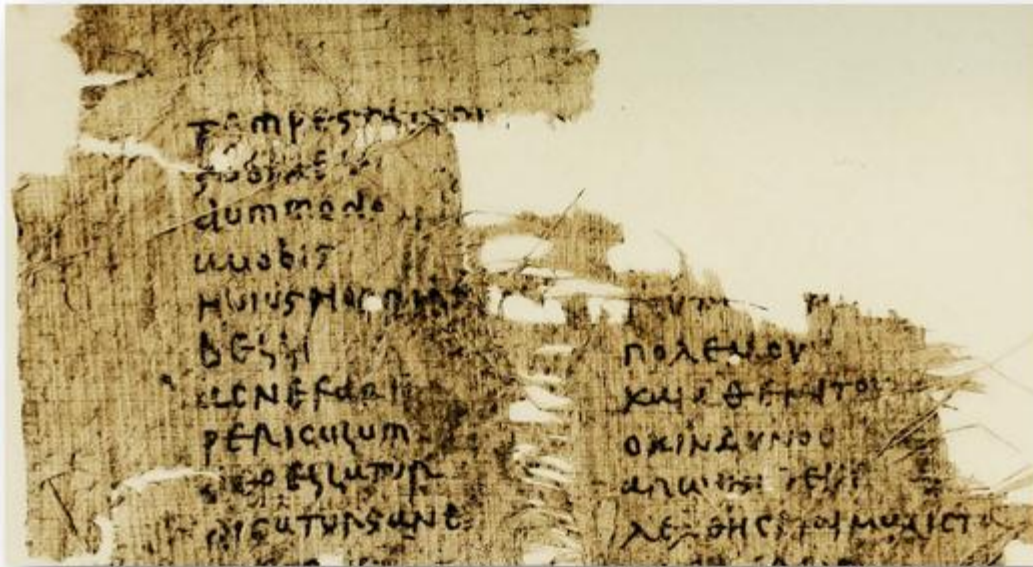 tempestatem
subire
dummodo
auobis
huiushorribi
belli
acnefarii
periculum
depellatur
dicatursane
πολεμου
και αθεμιτου
οκινδυνος
λεχθησεται μαλιστα